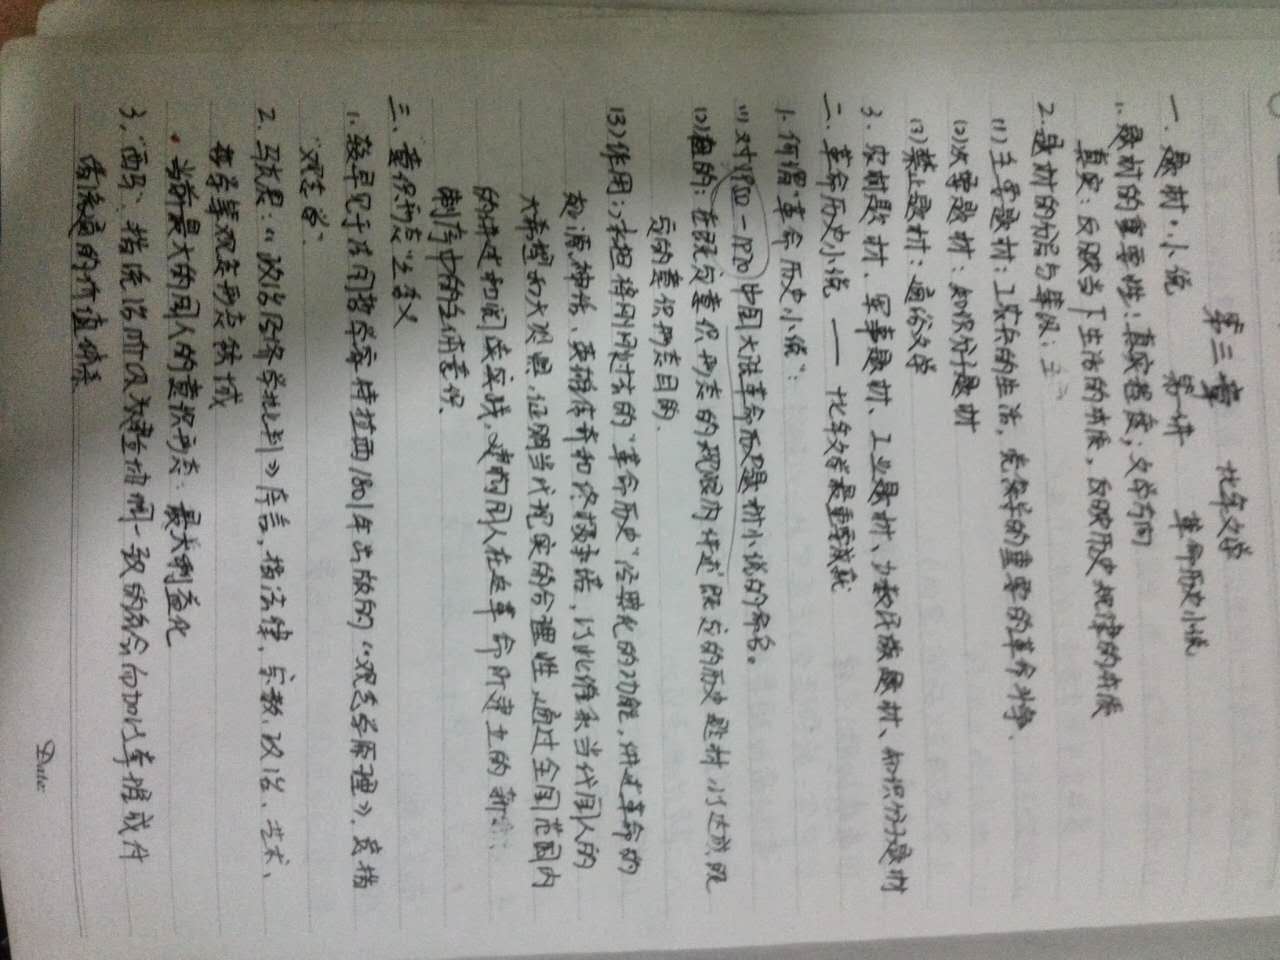 第三章 十七年文学
一、题材·小说 第一讲 革命历史小说
1、题材的重要性：真实程度；文学方向
真实：反映当下生活的本质，反映历史规律的本质
2、题材的分层与等级：主
(1)主要题材：工农兵的生活，党领导的重要的革命斗争.
(2)次要题材：知识分子题材
(3)禁止题材：通俗文学
3、农村题材、军事题材、工业题材、少数民族题材、知识分子题材
二、革命历史小说 —— 十七年文学最重要成就
1、何谓"革命历史小说"：
(1)对1950—1970中国大陆革命历史题材小说的命名。
(2)目的：在既定意识形态的规限内讲述既定的历史题材，以达成既
定的意识形态目的.
(3)作用：承担将刚刚过去的"革命历史"经典化的功能，讲述革命的
起源神话、英雄传奇和终极承诺，以此维系当代国人的
大希望和大恐惧，证明当代现实的合理性，通过全国范围内
的讲述和阅读实践，建构国人在这革命所建立的新
制序中的主体意识.
三、"意识形态"之含义
1、较早见于法国哲学家特拉西1801年出版的《观念学原理》，意指
"观念学".
2、马克思：《政治经济学批判》序言，指法律、宗教、政治、艺术、
哲学等观念形态领域
• 当前最大的国人的意识形态：最大利益化
3、"西马"：指统治阶级为建立协调一致的社会而加以掌握或片
普遍的价值体系
Date: